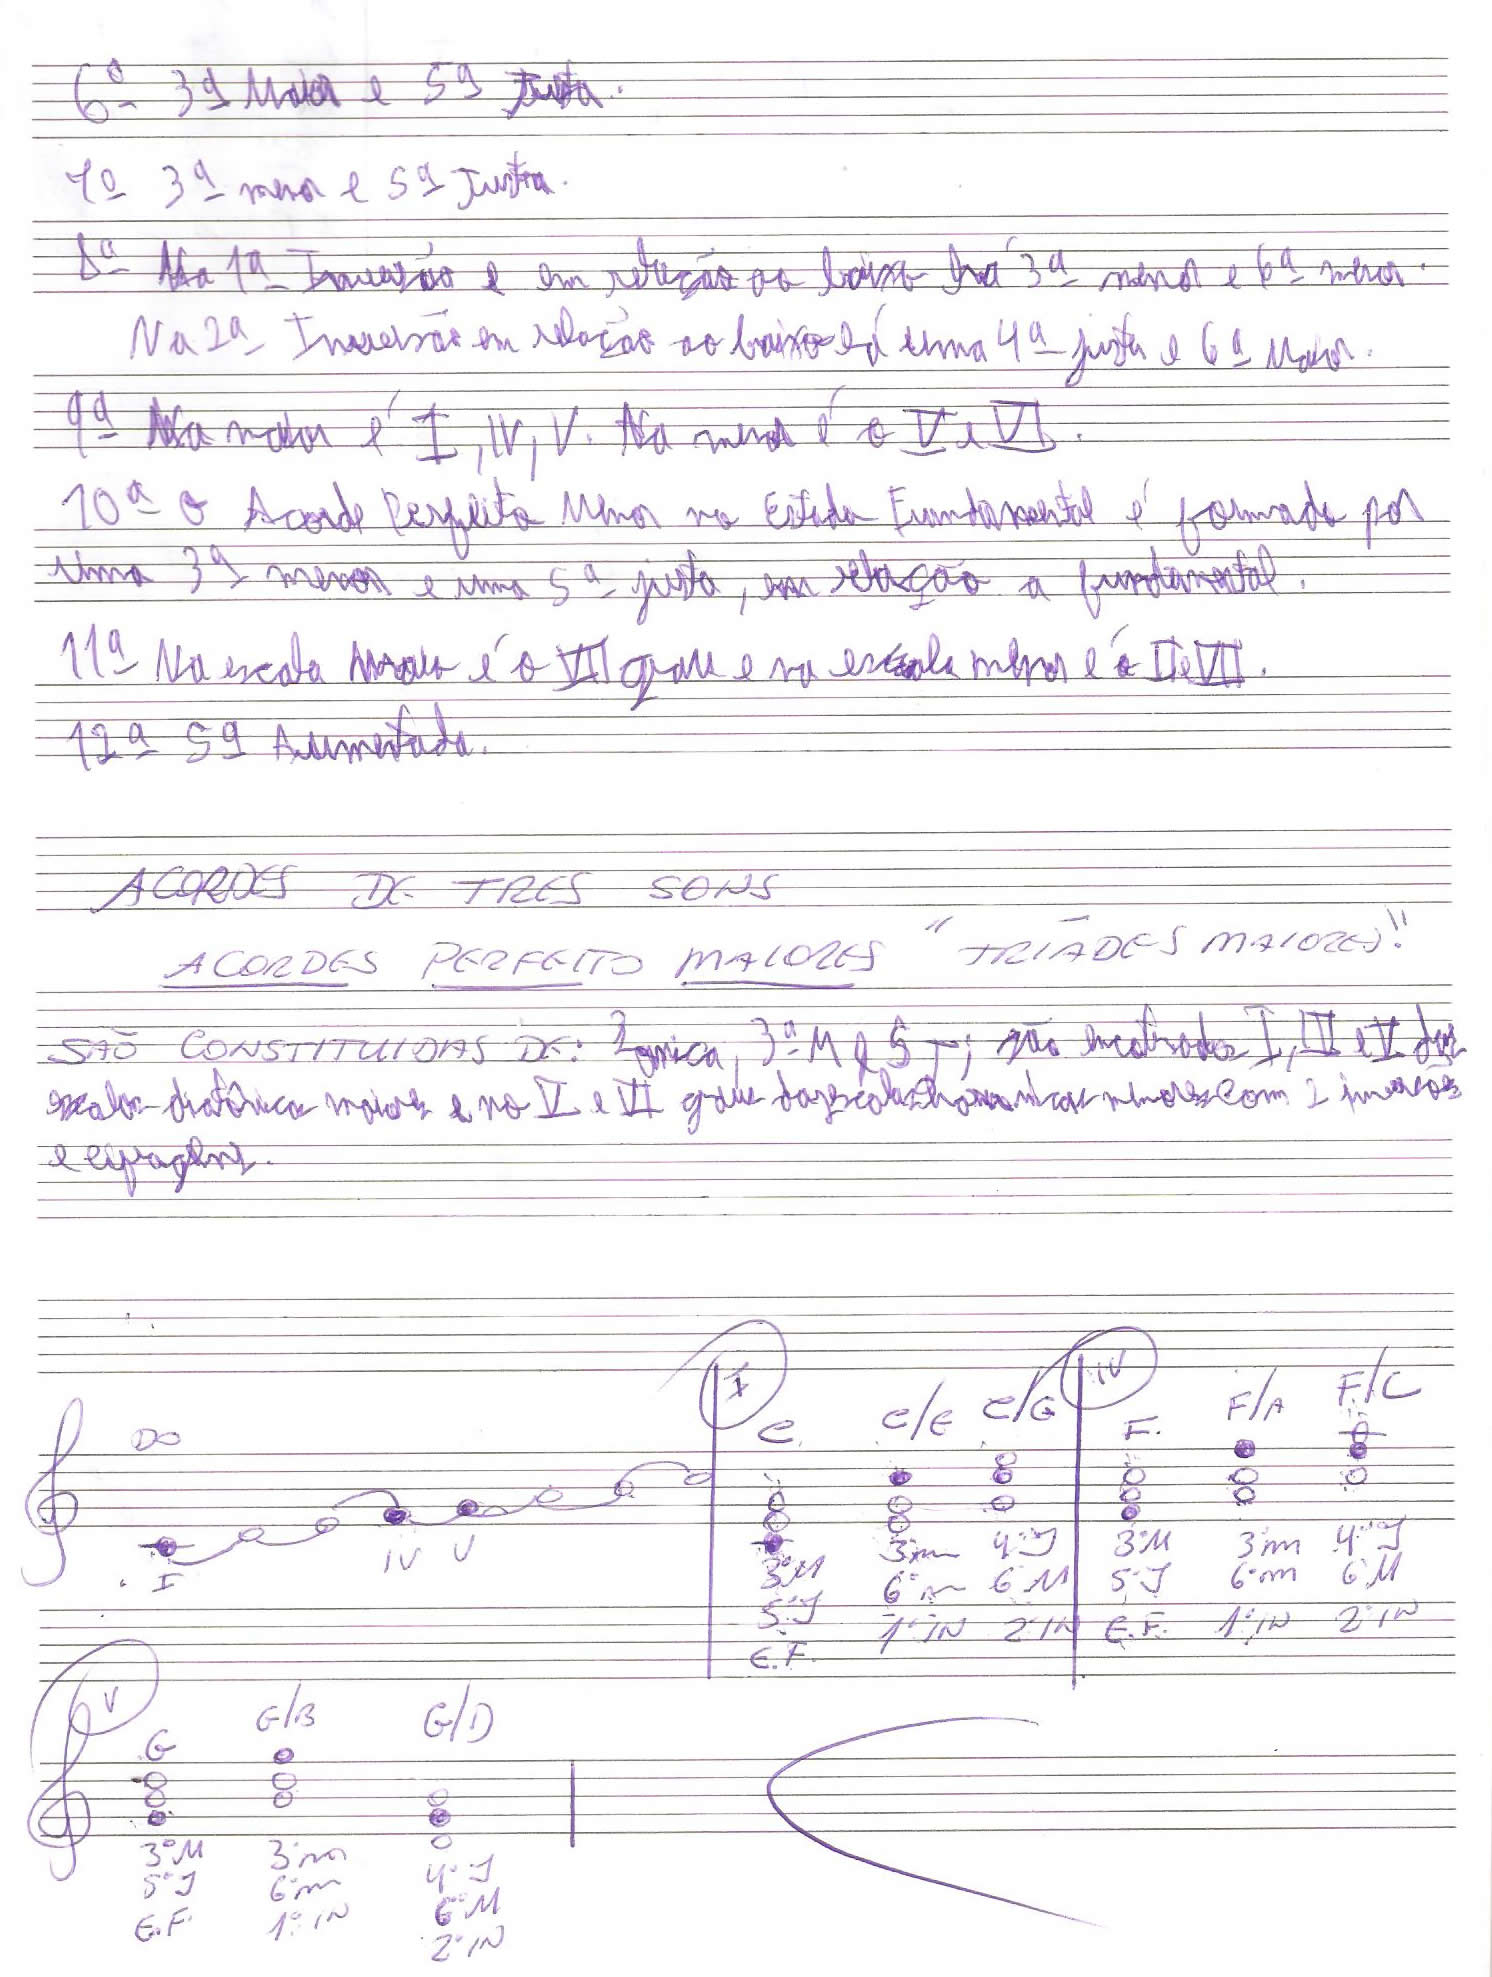 6ª 3ª Maior e 5ª Justa.
7ª 3ª menor e 5ª Justa.
8ª Na 1ª Inversão e em relação ao baixo há 3ª menor e 6ª menor.
Na 2ª Inversão em relação ao baixo é uma 4ª justa e 6ª Maior.
9ª Na maior é I, IV, V. Na menor é o V e VI.
10ª O Acorde Perfeito Menor no Estado Fundamental é formado por
uma 3ª menor e uma 5ª justa, em relação a fundamental.
11ª Na escala Maior é o VII grau e na escala menor é o II e VII.
12ª 5ª Aumentada.
ACORDES DE TRES SONS
ACORDES PERFEITO MAIORES "TRIADES MAIORES"
SAÕ CONSTITUIDAS DE: 3ª M e 5 J; são I, e V das
escalas diatônicas maiores e no V e VI grau das escalas menores com 2 inversões
e cifragens.
I IV
C C/E C/G F. F/A F/C
DO
IV V
I
3ªM 3ªm 4ªJ 3ªM 3ªm 4ªJ
5ªJ 6ªm 6M 5ªJ 6ªm 6M
E.F. 1ªIN 2ªIN E.F. 1ªIN 2ªIN
V
G G/B G/D
3ªM 3ªm 4ªJ
5ªJ 6ªm 6ªM
E.F. 1ªIN 2ªIN